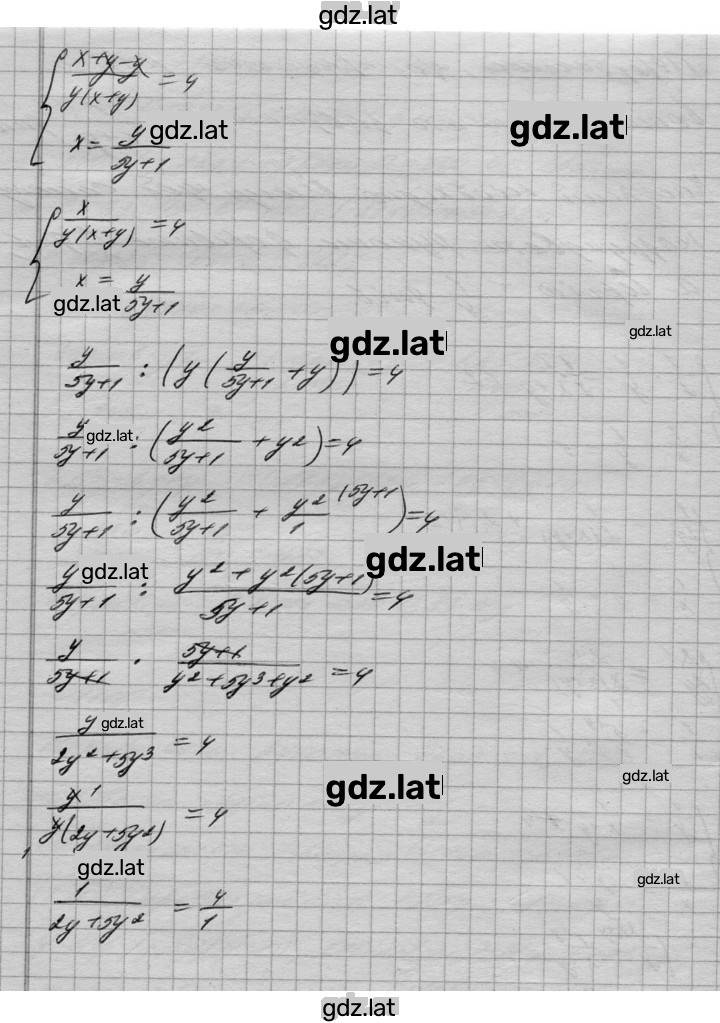 gdz.lat
(x+y-y)/(y(x+y)) = 4
x = y/(5y+1) gdz.lat gdz.lat
x/(y(x+y)) = 4
x = y/(5y+1)
gdz.lat
gdz.lat gdz.lat
y/(5y+1) : (y(y/(5y+1) + y)) = 4
y/(5y+1) gdz.lat : (y²/(5y+1) + y²) = 4
y/(5y+1) : (y²/(5y+1) + y²/1 (5y+1) = 4
gdz.lat
y/(5y+1) gdz.lat : (y² + y²(5y+1))/(5y+1) = 4
y/(5y+1) · (5y+1)/(y²+5y³+y²) = 4
y/(2y²+5y³) = 4 gdz.lat
gdz.lat gdz.lat
y 1/(y(2y+5y²)) = 4
1
gdz.lat gdz.lat
1/(2y+5y²) = 4/1
gdz.lat